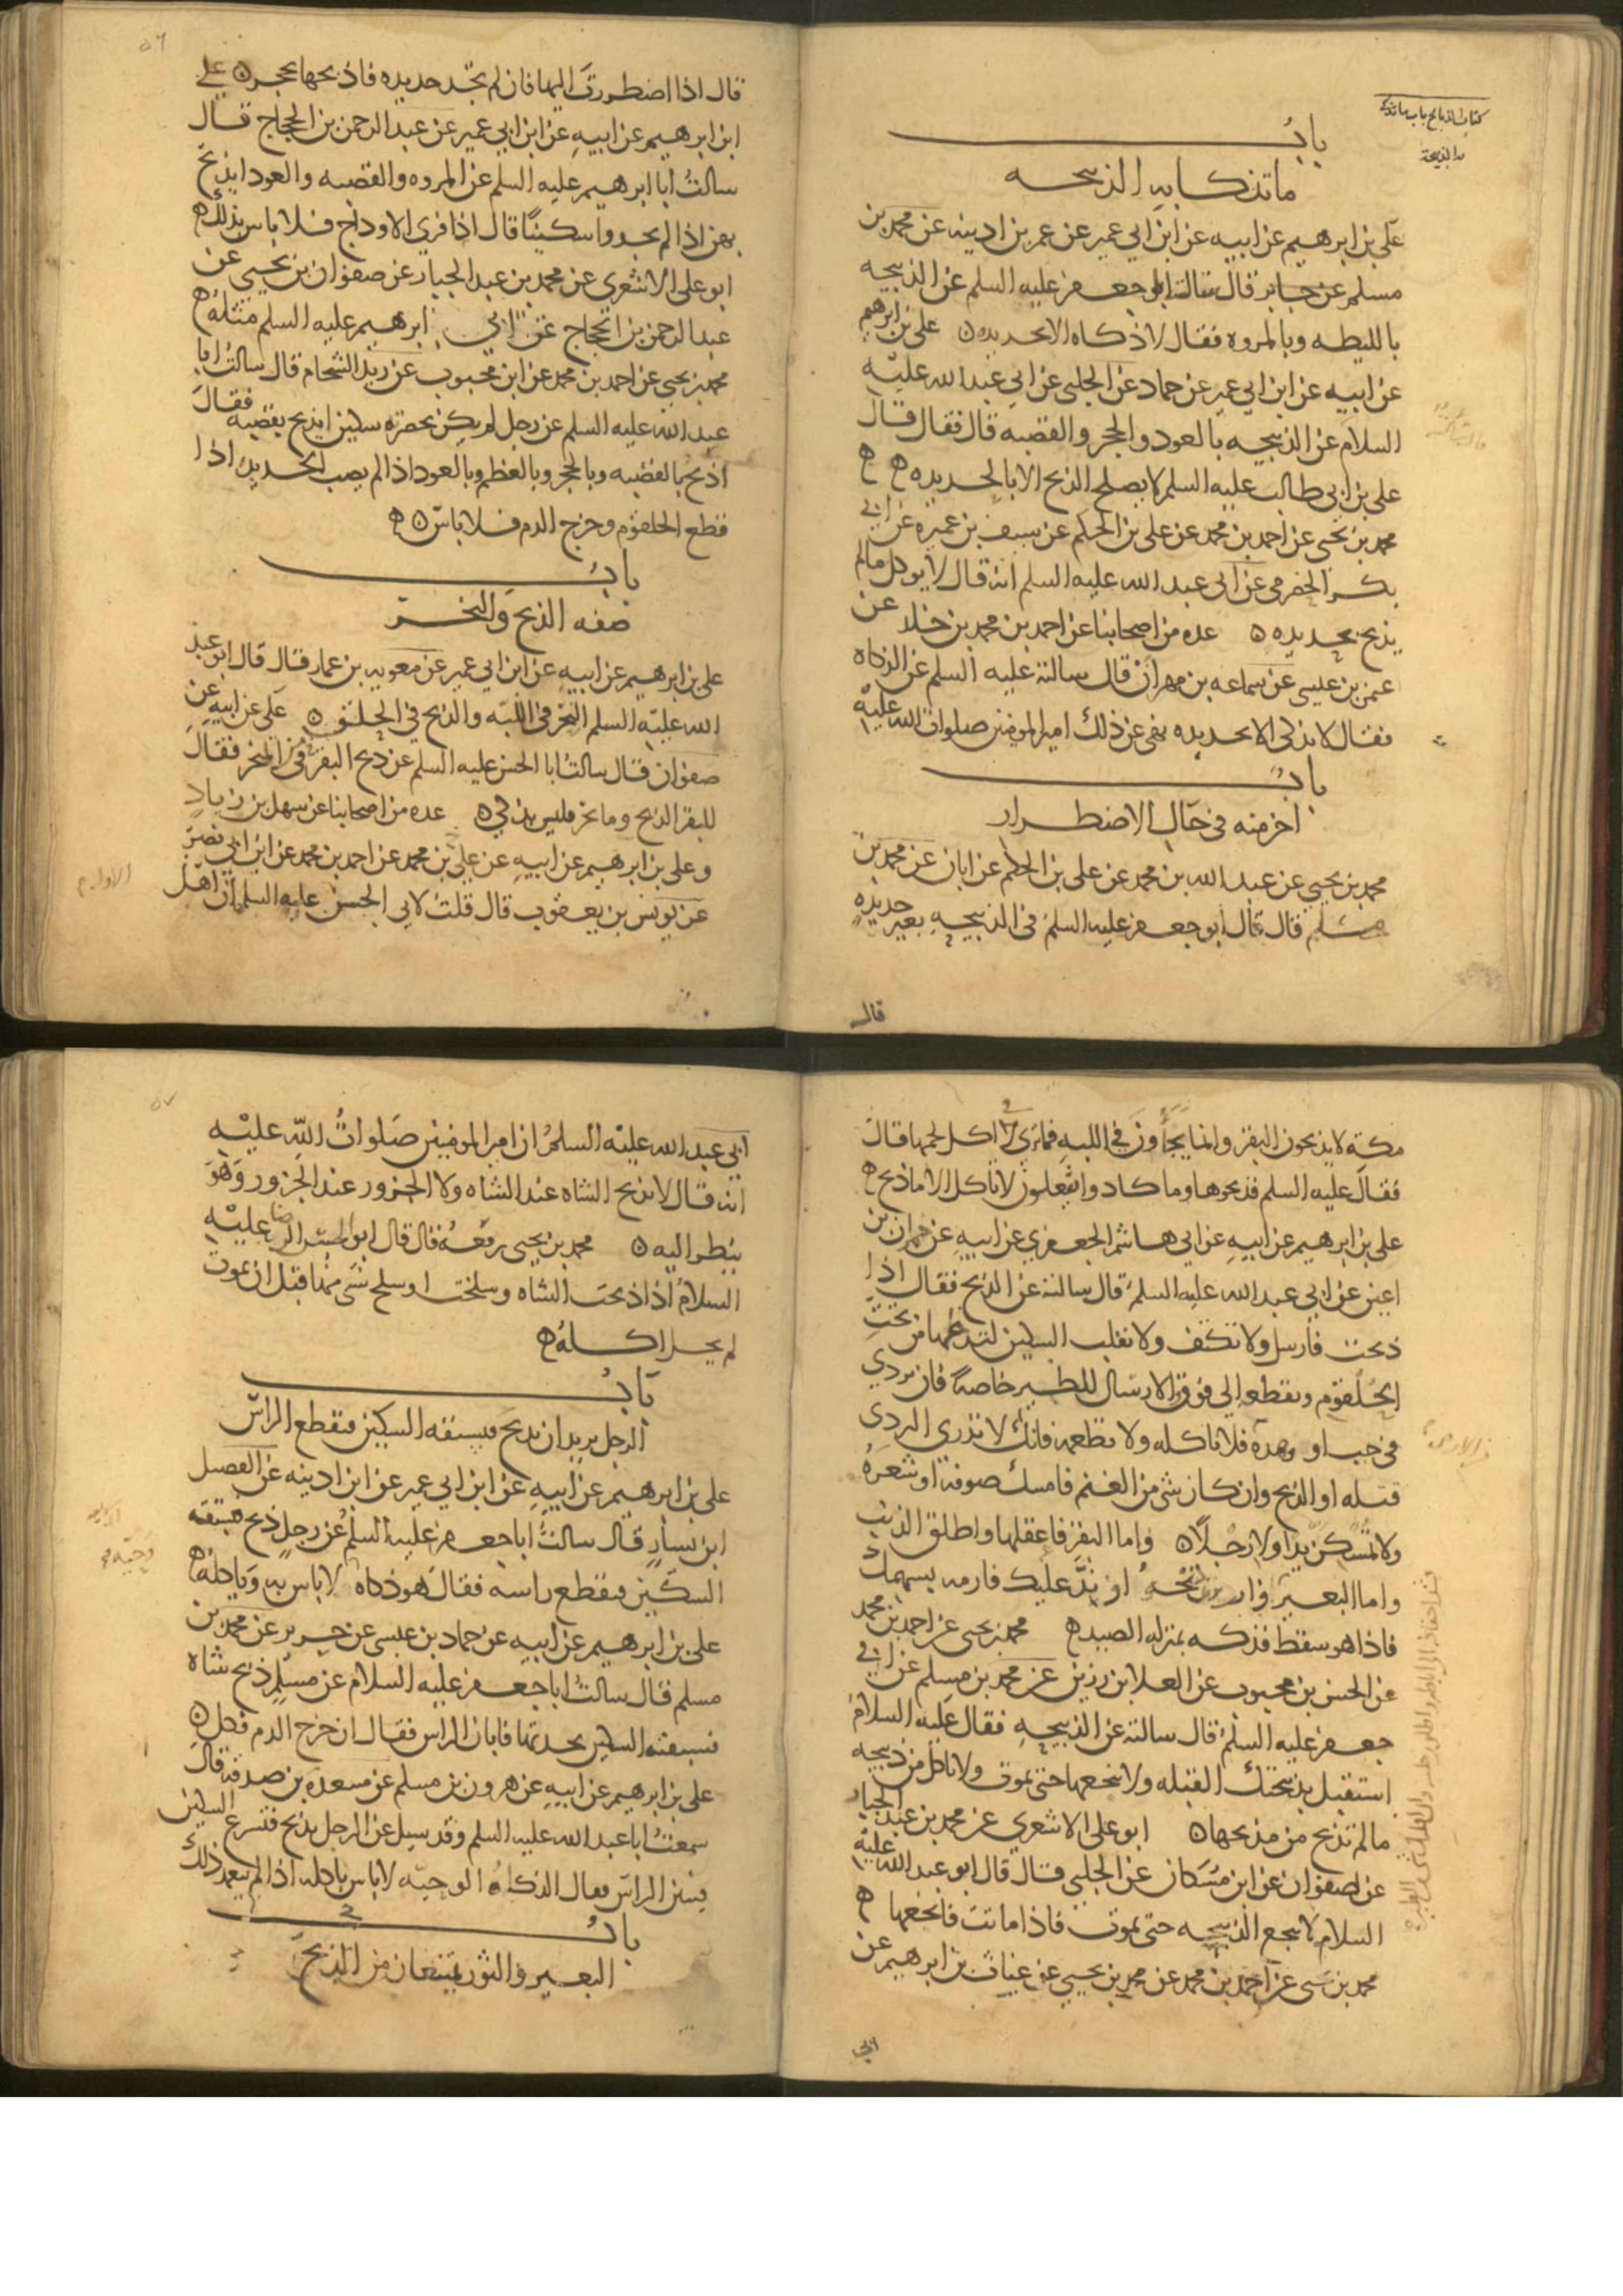 كتاب الذبائح باب ما تذكى
به الذبيحة
باب
ما تذكا به الذبيحه
علي بن ابرهيم عن ابيه عن ابن ابي عمير عن عمر بن اذينه عن محمد بن
مسلم عن جابر قال سالت ابا جعفر عليه السلم عن الذبيحه
بالليطه وبالمروه فقال لا ذكاه الا بحديده ۵ علي بن ابرهيم
عن ابيه عن ابن ابي عمير عن حماد عن الحلبي عن ابي عبد الله عليه
السلام عن الذبيحه بالعود والحجر والقصبه قال فقال قال
علي بن ابي طالب عليه السلم لا يصلح الذبح الا بالحديده ه ه
محمد بن يحيى عن احمد بن محمد عن علي بن الحكم عن سيف بن عميره عن ابي
بكر الحضرمي عن ابي عبد الله عليه السلم انه قال لا يوكل مالم
يذبح بحديده ۵ عده من اصحابنا عن احمد بن محمد بن خلد عن
عثمن بن عيسى عن سماعه بن مهران قال سالته عليه السلم عن الذكاه
فقال لا يذكى الا بحديده نهى عن ذلك امير المومنين صلوات الله عليه
باب
اخر منه في حال الاضطرار
محمد بن يحيى عن عبد الله بن محمد عن علي بن الحكم عن ابان عن محمد بن
مسلم قال قال ابو جعفر عليه السلم في الذبيحه بغير حديده
قال
۵٦
قال اذا اضطررت اليها فان لم تجد حديده فاذبحها بحجر ۵ علي
ابن ابرهيم عن ابيه عن ابن ابي عمير عن عبد الرحمن بن الحجاج قال
سالت ابا ابرهيم عليه السلم عن المروه والقصبه والعود ايذبح
بهن اذا لم يجدوا سكينا قال اذا فري الاوداج فلا باس بذلك ه
ابو علي الاشعري عن محمد بن عبد الجبار عن صفوان بن يحيى عن
عبد الرحمن بن الحجاج عن ابي ابرهيم عليه السلم مثله ه
محمد بن يحيى عن احمد بن محمد عن ابن محبوب عن زيد الشحام قال سالت ابا
عبد الله عليه السلم عن رجل لم يكن بحضرته سكين ايذبح بقصبه فقال
اذبح بالقصبه وبالحجر وبالعظم وبالعود اذا لم يصب الحديده اذا
قطع الحلقوم وخرج الدم فلا باس ۵ ه
باب
صفه الذبح والنحر
علي بن ابرهيم عن ابيه عن ابن ابي عمير عن معويه بن عمار قال قال ابو عبد
الله عليه السلم النحر في اللبه والذبح في الحلق ۵ علي عن ابيه عن
صفوان قال سالت ابا الحسن عليه السلم عن ذبح البقر في المنحر فقال
للبقر الذبح وما نحر فليس بذكي ۵ عده من اصحابنا عن سهل بن زياد
وعلي بن ابرهيم عن ابيه عن علي بن محمد عن احمد بن محمد عن ابن ابي نصر
عن يونس بن يعقوب قال قلت لابي الحسن عليه السلم ان اهل
مكة لا يذبحون البقر وانما يجأون في اللبه فماترى في اكل لحمها قال
فقال عليه السلم فذبحوها وما كادوا يفعلون لا تاكل الا ما ذبح ه
علي بن ابرهيم عن ابيه عن ابي هاشم الجعفري عن ابيه عن حمران بن
اعين عن ابي عبد الله عليه السلم قال سالته عن الذبح فقال اذا
ذبحت فارسل ولا تكتف ولا تقلب السكين لتدخلها من تحت
الحلقوم وتقطعه الى فوق والارسال للطير خاصة فان تردي
في جب او وهدة فلا تاكله ولا تطعمه فانك لا تدري التردي
قتله او الذبح وان كان شي من الغنم فامسك صوفه او شعره
ولا تمسكن يدا ولا رجلا ۵ واما البقر فاعقلها واطلق الذنب
واما البعير او ند عليك فارمه بسهمك
فاذا هو سقط فذكه بمنزله الصيد ه محمد بن يحيى عن احمد بن محمد
عن الحسن بن محبوب عن العلا بن رزين عن محمد بن مسلم عن ابي
جعفر عليه السلم قال سالته عن الذبيحه فقال عليه السلام
استقبل بذبيحتك القبله ولا تنخعها حتى تموت ولا تاكل من ذبيحه
مالم تذبح من مذبحها ۵ ابو علي الاشعري عن محمد بن عبد الجبار
عن صفوان عن ابن مسكان عن الحلبي قال قال ابو عبد الله عليه
السلام لا تنخع الذبيحه حتى تموت فاذا ماتت فانخعها ه
محمد بن يحيى عن احمد بن محمد عن محمد بن يحيى عن غياث بن ابرهيم عن
ابي
۵۷
ابي عبد الله عليه السلم ان امير المومنين صلوات الله عليه
انه قال لا تذبح الشاه عند الشاه ولا الجزور عند الجزور وهو
ينظر اليه ۵ محمد بن يحيى رفعه قال قال ابو الحسن الرضا عليه
السلام اذا ذبحت الشاه وسلخت او سلخ شي منها قبل ان تموت
لم يحل اكله ه
باب
الرجل يريد ان يذبح فيسبقه السكين فيقطع الراس
علي بن ابرهيم عن ابيه عن ابن ابي عمير عن ابن اذينه عن الفضيل
ابن يسار قال سالت ابا جعفر عليه السلم عن رجل ذبح فسبقه
السكين فيقطع راسه فقال هو ذكاه لا باس به وياكله ه
علي بن ابرهيم عن ابيه عن حماد بن عيسى عن حريز عن محمد بن
مسلم قال سالت ابا جعفر عليه السلام عن مسلم ذبح شاه
فسبقته السكين بحدتها فابان الراس فقال ان خرج الدم فكل ۵
علي بن ابرهيم عن ابيه عن هرون بن مسلم عن مسعده بن صدقه قال
سمعت ابا عبد الله عليه السلم وقد سيل عن الرجل يذبح فتسرع السكين
فتبين الراس فقال الذكاه الوحيه لا باس باكله اذا لم يتعمد ذلك
باب
البعير والثور يمتنعان من الذبح